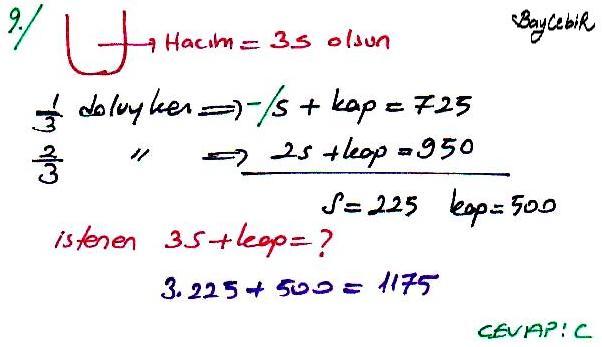 9./
BayCebiR
Hacım = 3s olsun
1/3 doluyken ⇒ -/ s + kap = 725
2/3 " ⇒ 2s + kap = 950
s = 225 kap = 500
istenen 3s + kap = ?
3.225 + 500 = 1175
CEVAP: C